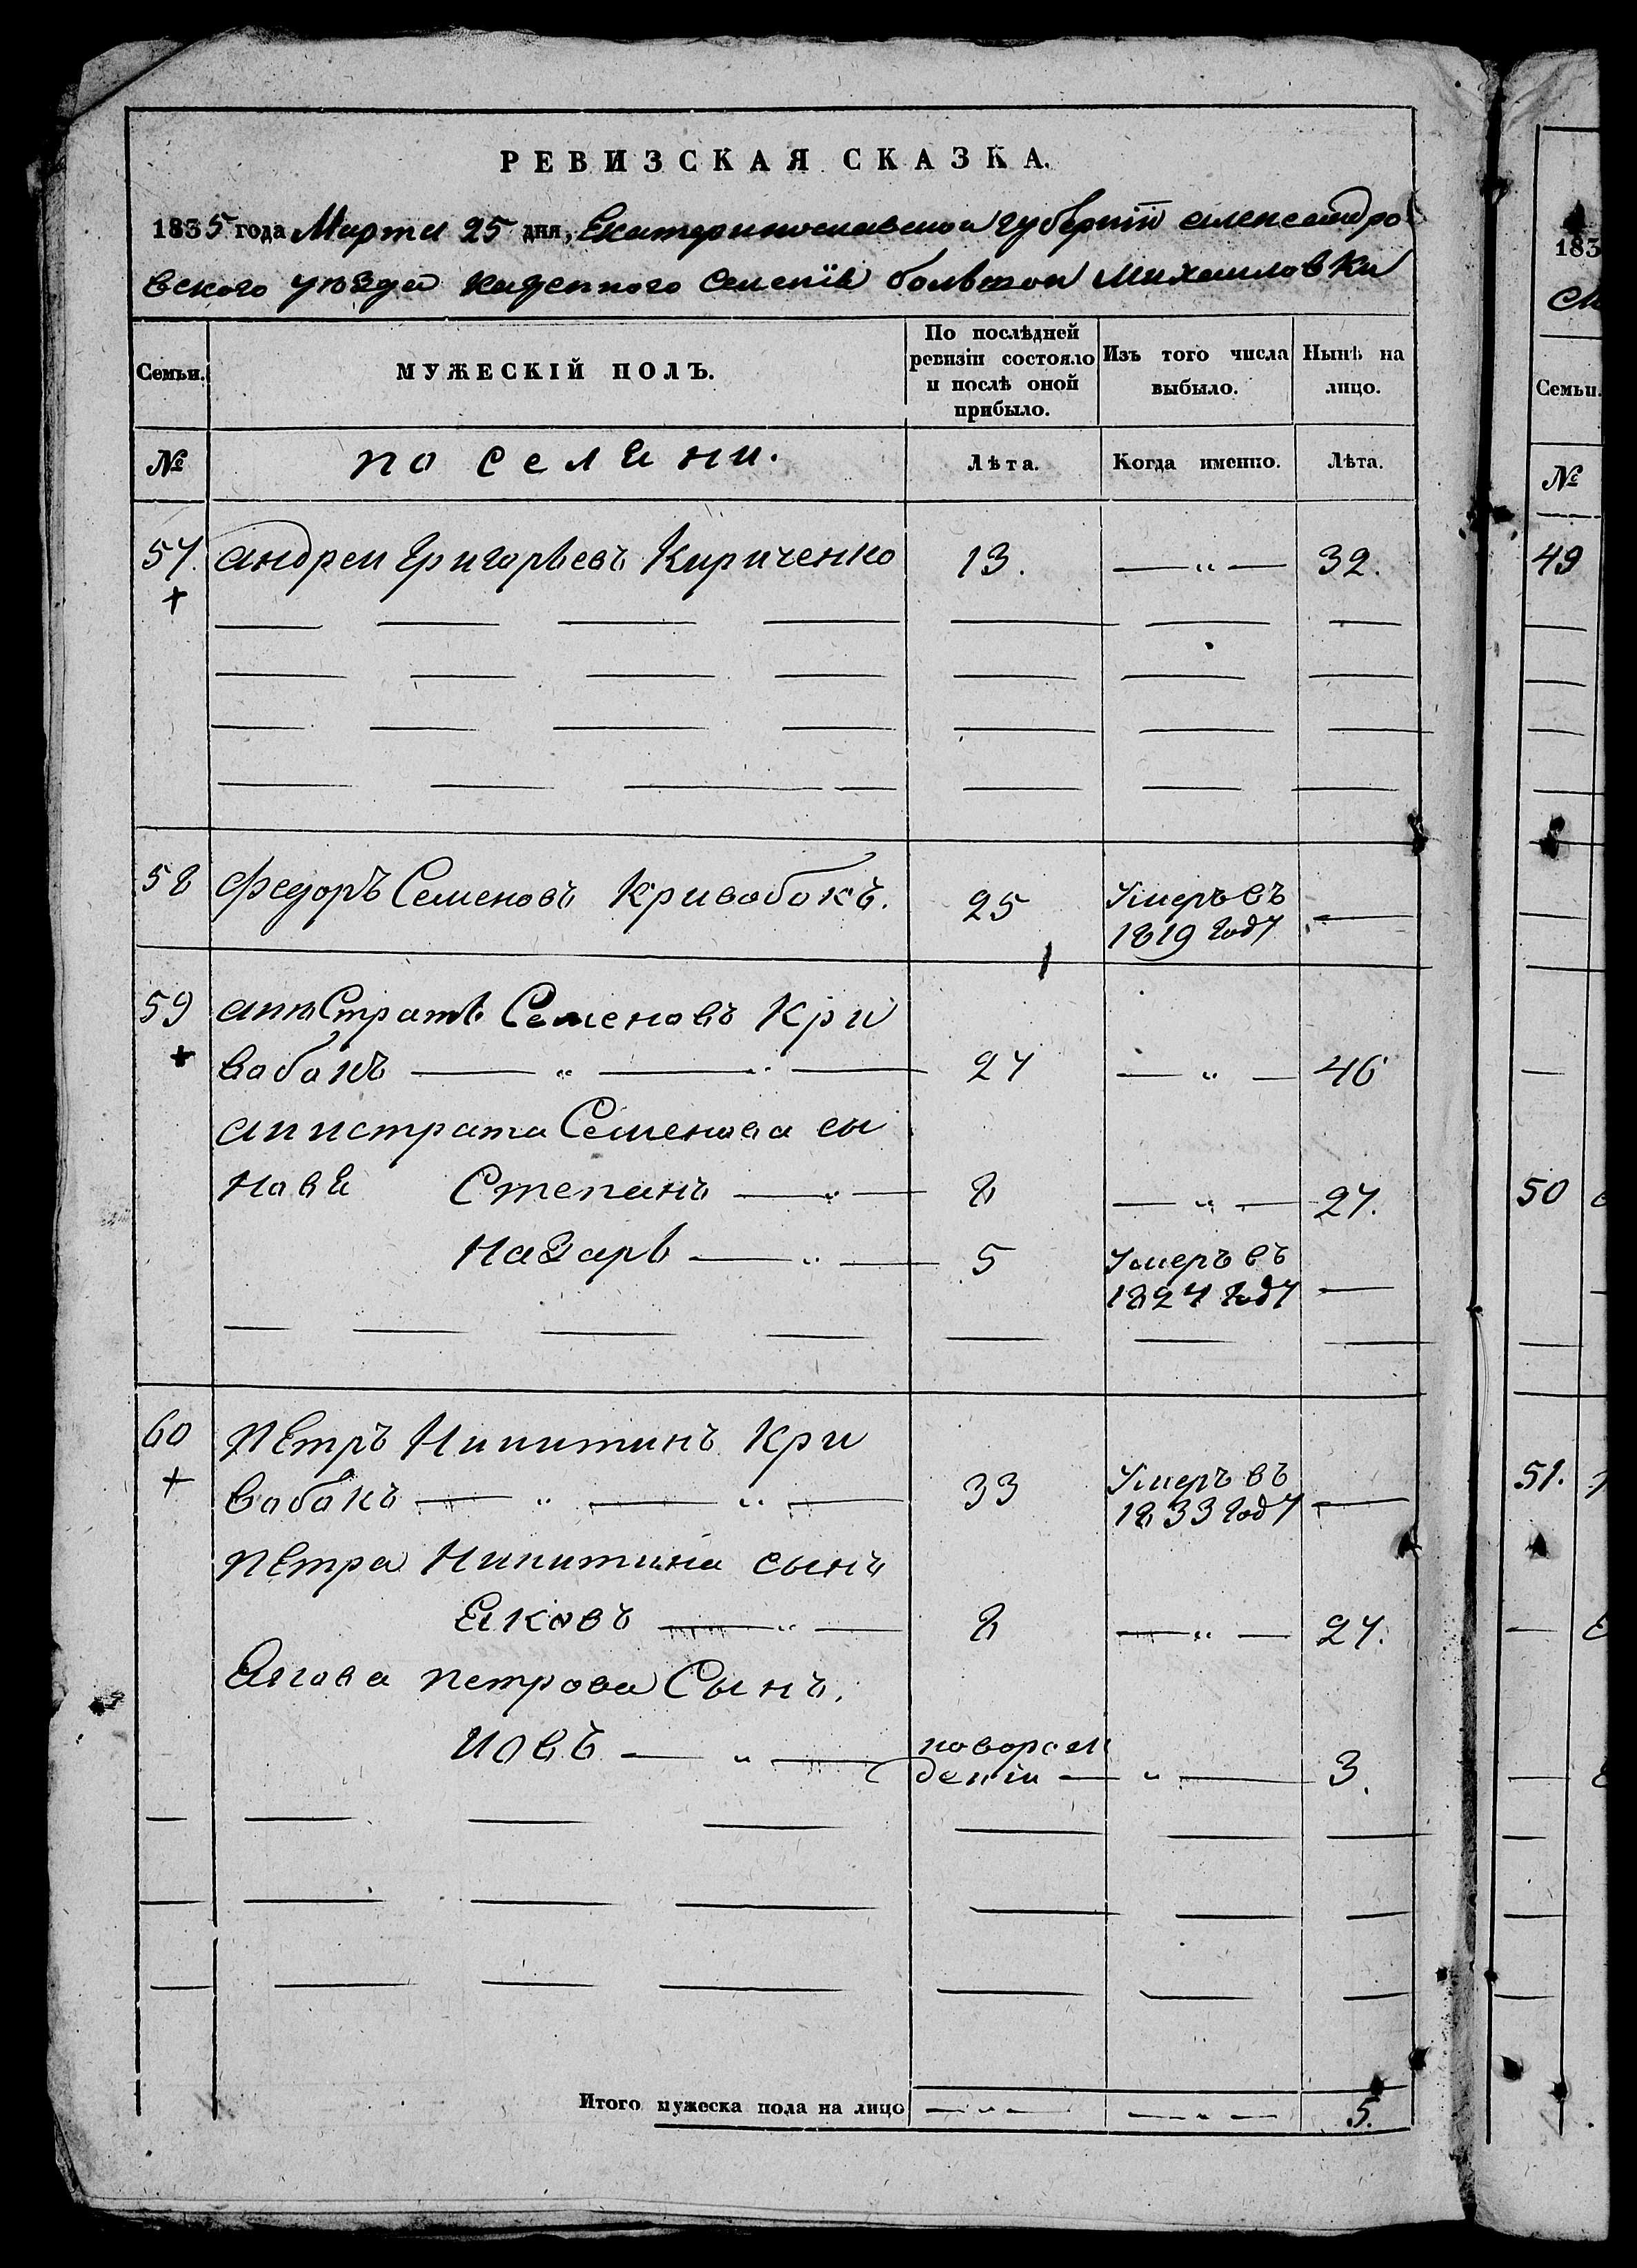 РЕВИЗСКАЯ СКАЗКА.
1835 года Марта 25 дня, Екатеринославской губернїи александро
вского уѣзда казенного селенїя большой Михайловки
Семьи.
МУЖЕСКІЙ ПОЛЪ.
По послѣдней ревизіи состояло и послѣ оной прибыло.
Изъ того числа выбыло.
Нынѣ на лицо.
№
поселяни.
Лѣта.
Когда именно.
Лѣта.
57. андреи Григорьевъ Кириченко 13. — „ — 32.
+
58 Федоръ Семеновъ Кривобокъ. 25 Умеръ въ
1819 году —
59 апъСтратъ Семеновъ Кри
+ вобокъ — „ — „ — 27 — „ — 46
апистрата Семенова сы
новя Степанъ — „ — 8 — „ — 27.
Назаръ — „ — 5 Умеръ въ
1827 году —
60 Петръ Никитинъ Кри
+ вобокъ — „ — „ — 33 Умеръ въ
1833 году —
Петра Никитина сынъ
Яковъ — „ — 8 — „ — 27.
Якова петрова Сынъ.
Иовъ — „ — новорож
денїи — „ — 3.
Итого мужеска пола на лицо — „ — — „ — 5.
183
Семьи.
№
49
50
51.